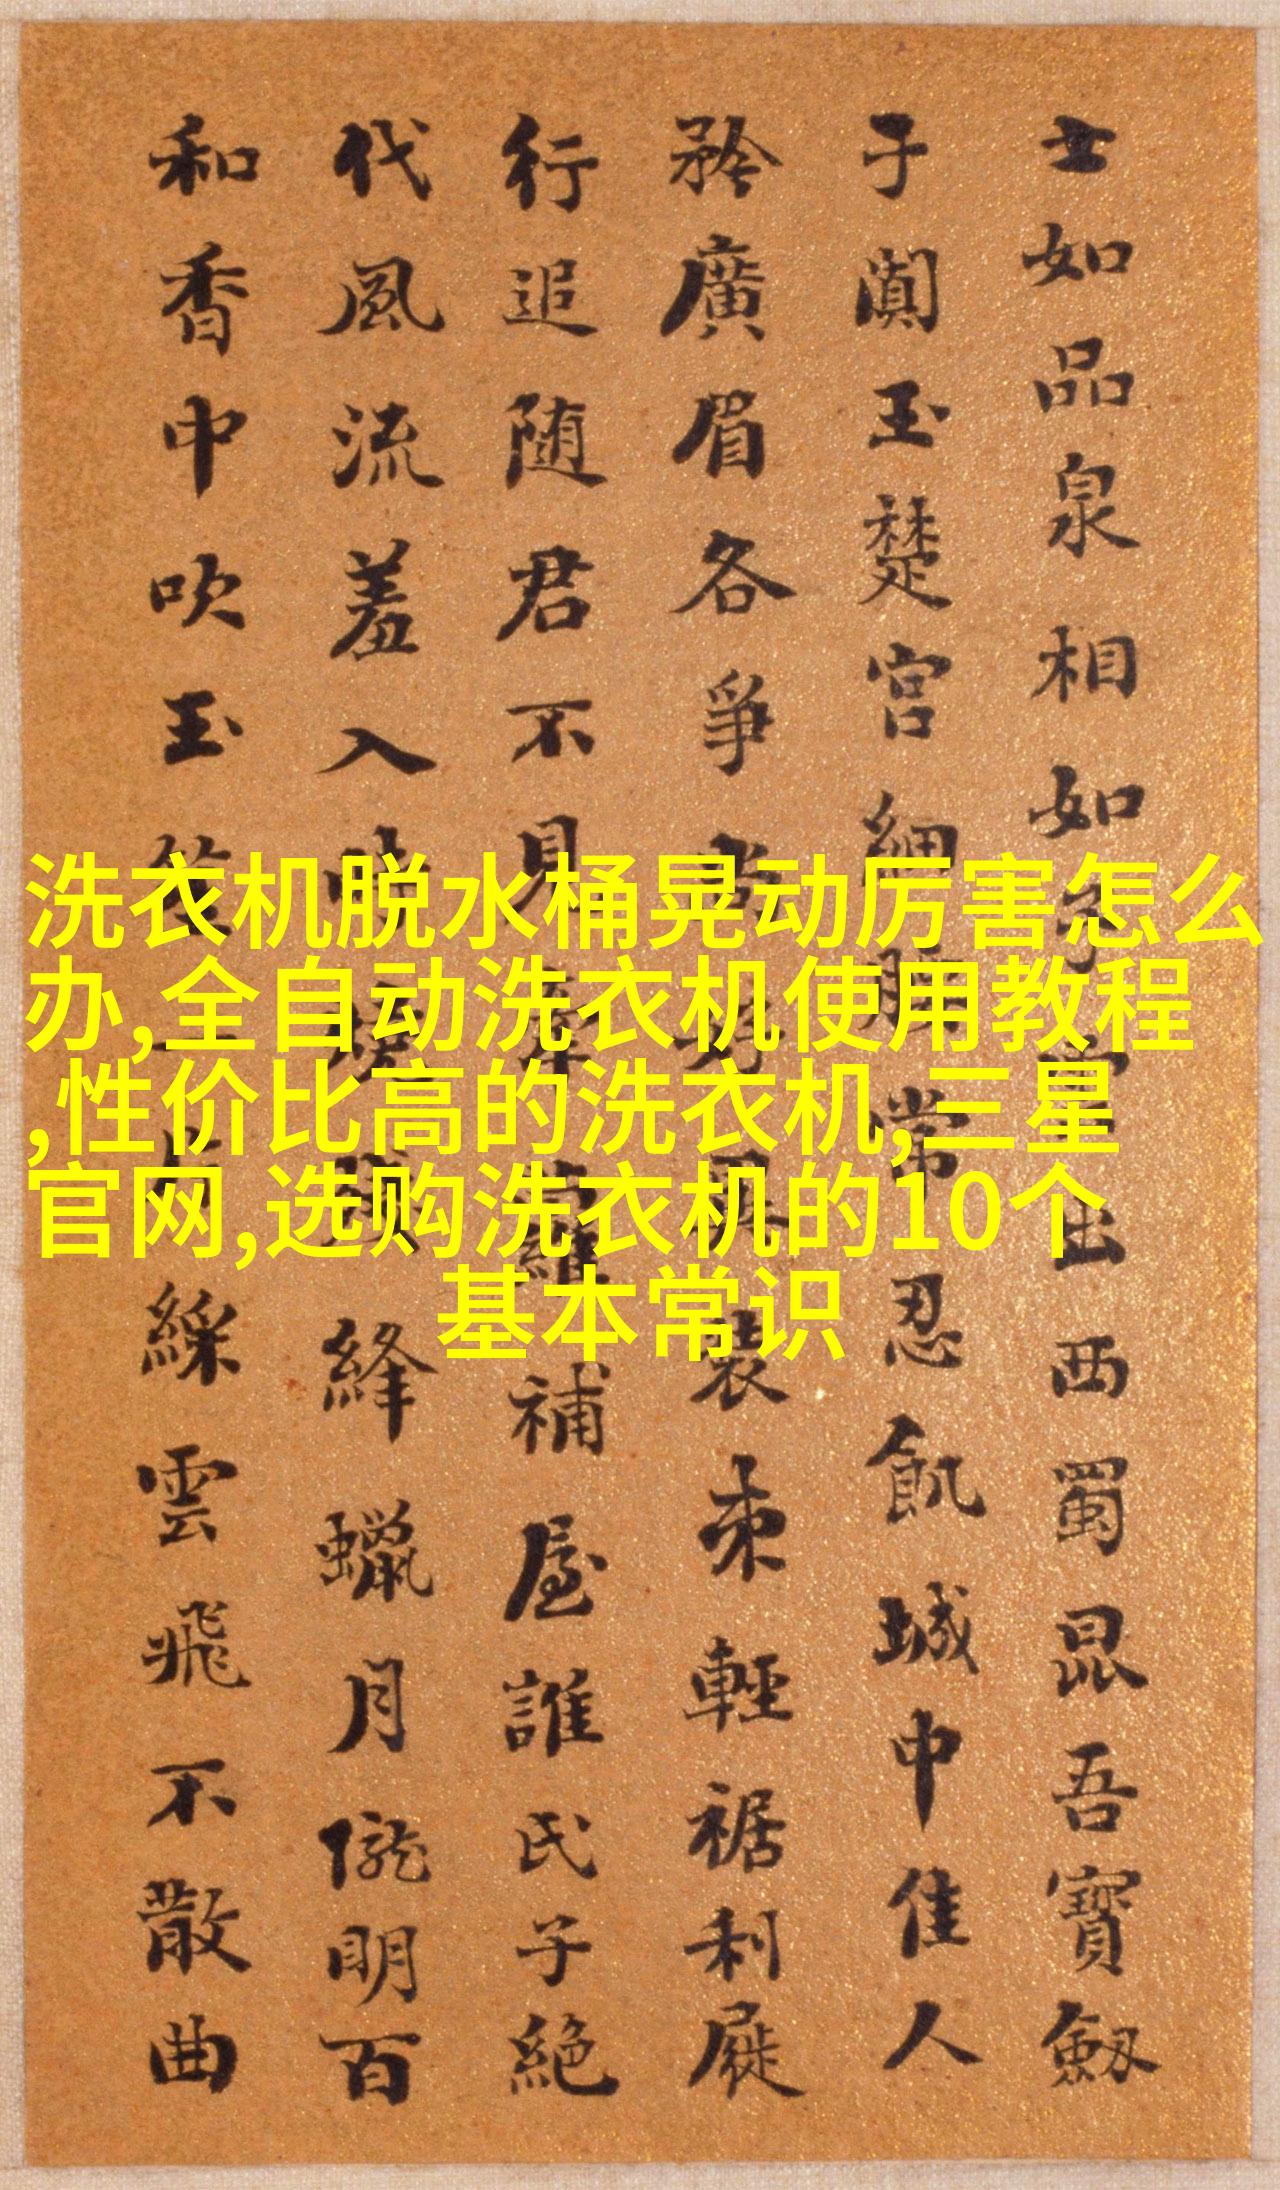 洗衣机脱水桶晃动厉害怎么
办,全自动洗衣机使用教程
,性价比高的洗衣机,三星
官网,选购洗衣机的10个
基本常识
士如品泉相如出西蜀昆吾寶劔
子闐玉楚宮細腰常忍飢城中佳人
矜廣眉各爭異裝束輕裾利屣
行追随君不見牽蘿補屋誰氏子絕
代風流羞入時絳蠟月隴明百
和香中吹玉笙綵雲飛不散曲